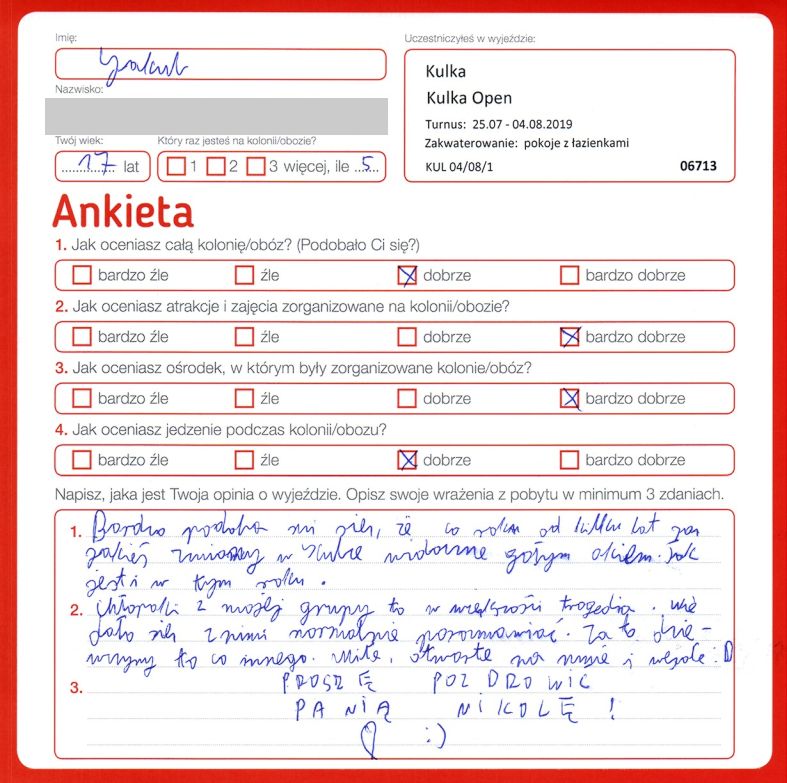 Imię:
Uczestniczyłeś w wyjeździe:
Jakub
Kulka
Kulka Open
Nazwisko:
Turnus: 25.07 - 04.08.2019
Zakwaterowanie: pokoje z łazienkami
KUL 04/08/1 06713
Twój wiek: Który raz jesteś na kolonii/obozie?
17 lat 1 2 3 więcej, ile 5
Ankieta
1. Jak oceniasz całą kolonię/obóz? (Podobało Ci się?)
bardzo źle źle dobrze bardzo dobrze
2. Jak oceniasz atrakcje i zajęcia zorganizowane na kolonii/obozie?
bardzo źle źle dobrze bardzo dobrze
3. Jak oceniasz ośrodek, w którym były zorganizowane kolonie/obóz?
bardzo źle źle dobrze bardzo dobrze
4. Jak oceniasz jedzenie podczas kolonii/obozu?
bardzo źle źle dobrze bardzo dobrze
Napisz, jaka jest Twoja opinia o wyjeździe. Opisz swoje wrażenia z pobytu w minimum 3 zdaniach.
1. Bardzo podoba mi się, że co roku od kilku lat są
jakieś zmiany w Kulce widoczne gołym okiem. Tak
jest i w tym roku.
2. Chłopaki z mojej grupy to w większości tragedia. Nie
dało się z nimi normalnie porozmawiać. Za to dzie-
wczyny to co innego. Miłe, otwarte na mnie i wesołe :D
3. PROSZĘ POZDROWIĆ
PANIĄ NIKOLĘ!
:)